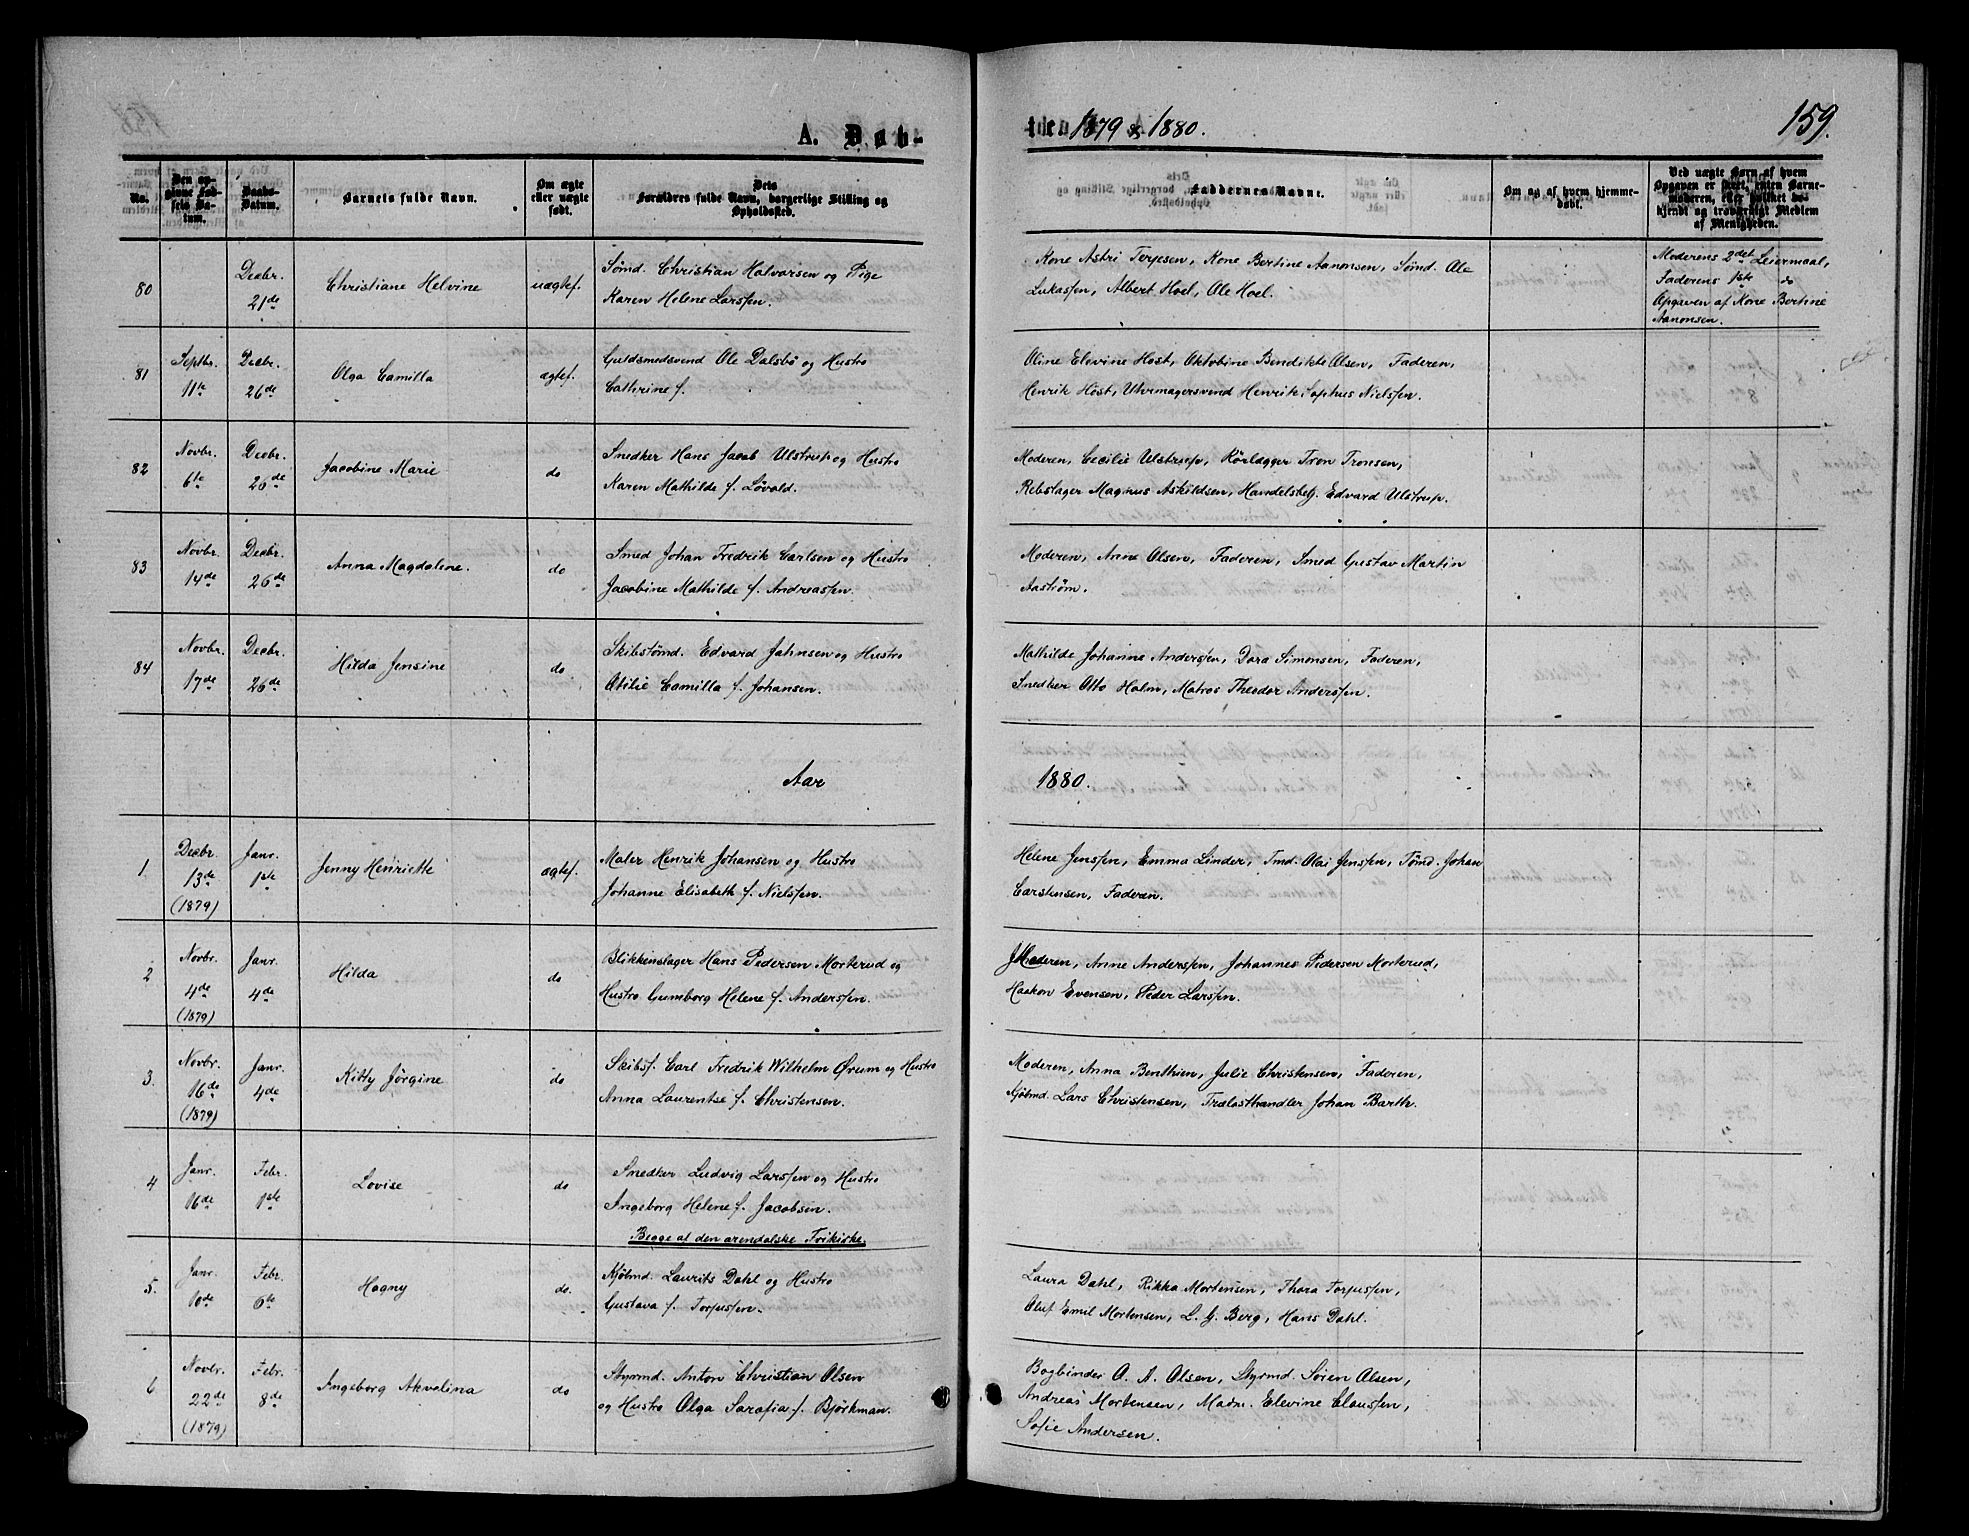 A. Døb-
te i 1879 & 1880.
159.
No.
Den op-
givne Fød-
sels Da-
tum.
Daabs-
Datum.
Barnets fulde Navn.
Om ægte
eller uægte
født.
Dets
Forældres fulde Navn, borgerlige Stilling og
Opholdssted.
Faddernes Navne.
Om og af hvem hjemme-
døbt.
Ved uægte Børn af hvem
Opgaven er skeet, enten Barne-
moderen, eller hvilket be-
kjendt og troværdigt Medlem
af Menigheden.
80
Decbr.
21de
Christiane Helvine
uægtef.
Sømd. Christian Halvorsen og Pige
Karen Helene Larssen.
Kone Astri Terjesen, Kone Bertine Aanonsen, Sømd. Ole
Lukassen, Albert Hoel, Ole Hoel.
Moderens 2det Leiermaal,
Faderens 1ste do
Opgaven af Kone Bertine
Aanonsen.
81
Septbr.
11te
Decbr.
26de
Olga Camilla
ægtef.
Guldsmedsvend Ole Dalsbø og Hustro
Cathrine f.
Oline Elevine Høst, Oktobine Bendikte Olsen, Faderen,
Henrik Høst, Uhrmagersvend Henrik Sophus Nielssen.
82
Novbr.
6te
Decbr.
26de
Jacobine Marie
do
Snedker Hans Jacob Ulstrup og Hustro
Karen Mathilde f. Løvold.
Moderen, Cecilie Ulstrup, Rörlægger Tron Tronsen,
Rebslager Magnus Askildsen, Handelsbetj. Edvard Ulstrup.
83
Novbr.
14de
Decbr.
26de
Anna Magdalene.
do
Smed Johan Fredrik Carlsen og Hustro
Jacobine Mathilde f. Andreassen.
Moderen, Anne Olsen, Faderen, Smed Gustav Martin
Aastrøm.
84
Novbr.
17de
Decbr.
26de
Hilda Jensine
do
Skibstømd. Edvard Jahnsen og Hustro
Otilie Camilla f. Johansen.
Mathilde Johanne Anderssen, Dora Simonsen, Faderen,
Snedker Otto Holm, Matros Theodor Anderssen.
Aar
1880.
1
Decbr.
13de
(1879)
Janr.
1ste
Jenny Henriette
ægtef.
Maler Henrik Johansen og Hustro
Johanne Elisabeth f. Nielssen.
Helene Jenssen, Emma Linder, Tmd. Olai Jenssen, Tömd. Johan
Carstensen, Faderen.
2
Novbr.
4de
(1879)
Janr.
4de
Hilda
do
Blikkenslager Hans Pedersen Morterud og
Hustro Gumborg Helene f. Anderssen.
Moderen, Anne Anderssen, Johannes Pedersen Morterud,
Haakon Evensen, Peder Larssen.
3.
Novbr.
16de
(1879)
Janr.
4de
Kitty Jörgine
do
Skibsf. Carl Fredrik Wilhelm Ørum og Hustro
Anna Laurentse f. Christensen.
Moderen, Anna Benthien, Julie Christensen, Faderen,
Kjöbmd. Lars Christensen, Trælasthandler Johan Barth.
4
Janr.
16de
Febr.
1ste
Lovise
do
Snedker Ludvig Larssen og Hustro
Ingeborg Helene f. Jacobsen.
Begge af den arendalske Frikirke.
5.
Janr.
10de
Febr.
6te
Hagny
do.
Kjöbmd. Laurits Dahl og Hustro
Gustava f. Torjussen.
Laura Dahl, Rikka Mortensen, Thora Torjussen,
Oluf Emil Mortensen, L. G. Berg, Hans Dahl.
6
Novbr.
22de
(1879)
Febr.
8de
Ingeborg Akvalina
do
Styrmd. Anton Christian Olsen
og Hustro Olga Sarafia f. Björkman.
Bogbinder O. A. Olsen, Styrmd. Sören Olsen,
Andreas Mortensen, Madm. Elevine Claussen,
Sofie Andersen.